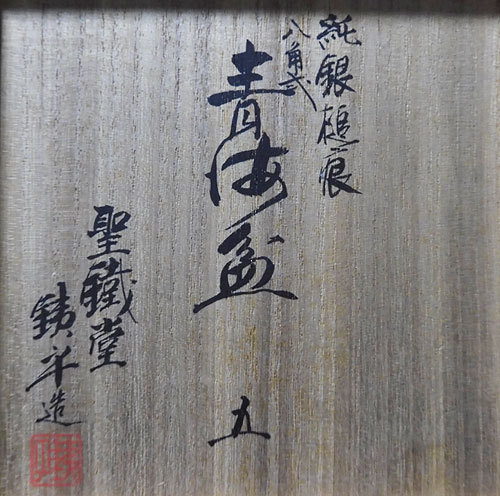 純銀槌痕
八角弐
青海盆 五
聖鐵堂
銕斗造